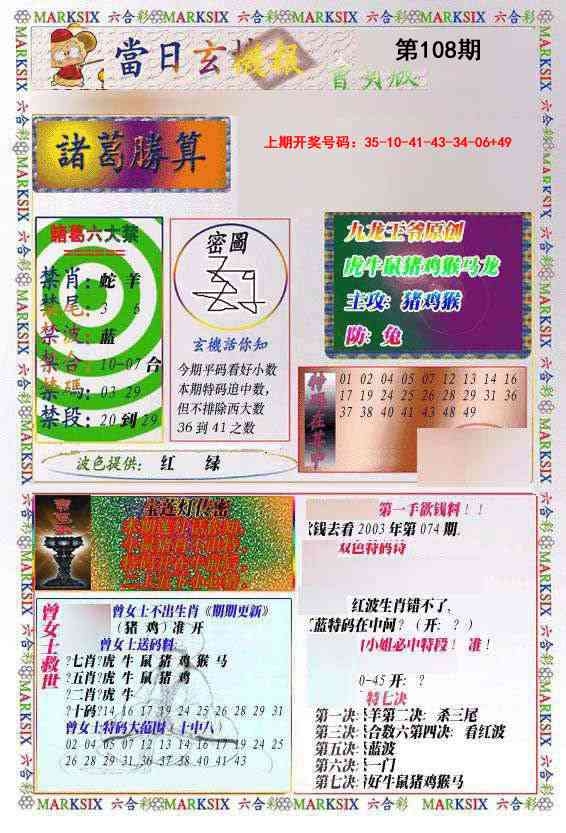 MARKSIX 六合彩 MARKSIX 六合彩 MARKSIX 六合彩 MARKSIX
當日玄机
機報
第108期
諸葛勝算
上期开奖号码：35-10-41-43-34-06+49
諸葛六大禁
禁肖：蛇 羊
禁尾：3 6
禁波：蓝
禁合：10-07 合
禁碼：03 29
禁段：20 到 29
密圖
玄機話你知
今期平码看好小数
本期特码追中数，
但不排除西大数
36 到 41 之数
九龙王爷原创
虎牛鼠猪鸡猴马龙
主攻：猪鸡猴
防：兔
01 02 04 05 07 12 13 14 16
17 19 24 25 26 28 29 31 36
37 38 40 41 43 48 49
波色提供：红 绿
宝莲灯传密
第一手欲钱料！！
欠钱去看 2003 年第 074 期.
双色特码诗
红波生肖错不了，
蓝特码在中间？（开：？）
小姐必中特段！准！
0-45 开：？
特七决
第一决：杀羊第二决：杀三尾
第三决：杀合数六第四决：看红波
第五决：杀蓝波
第六决：杀一门
第七决：看好牛鼠猪鸡猴马
曾女士救世
曾女士不出生肖《期期更新》
（猪 鸡）准 开
曾女士送码料：
?七肖?虎 牛 鼠 猪 鸡 猴 马
?五肖?虎 牛 鼠 猪 鸡
?二肖?虎 牛
?十码?14 16 17 19 24 25 26 28 29 31
曾女士特码大范围：十中八）
02 04 05 07 12 13 14 16 17 19 24 25
26 28 29 31 36 37 38 40 41 43
MARKSIX 六合彩 MARKSIX 六合彩 MARKSIX 六合彩 MARKSIX